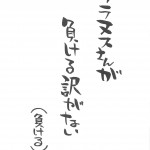 ラヌスさんが
負ける訳がない
(負ける)